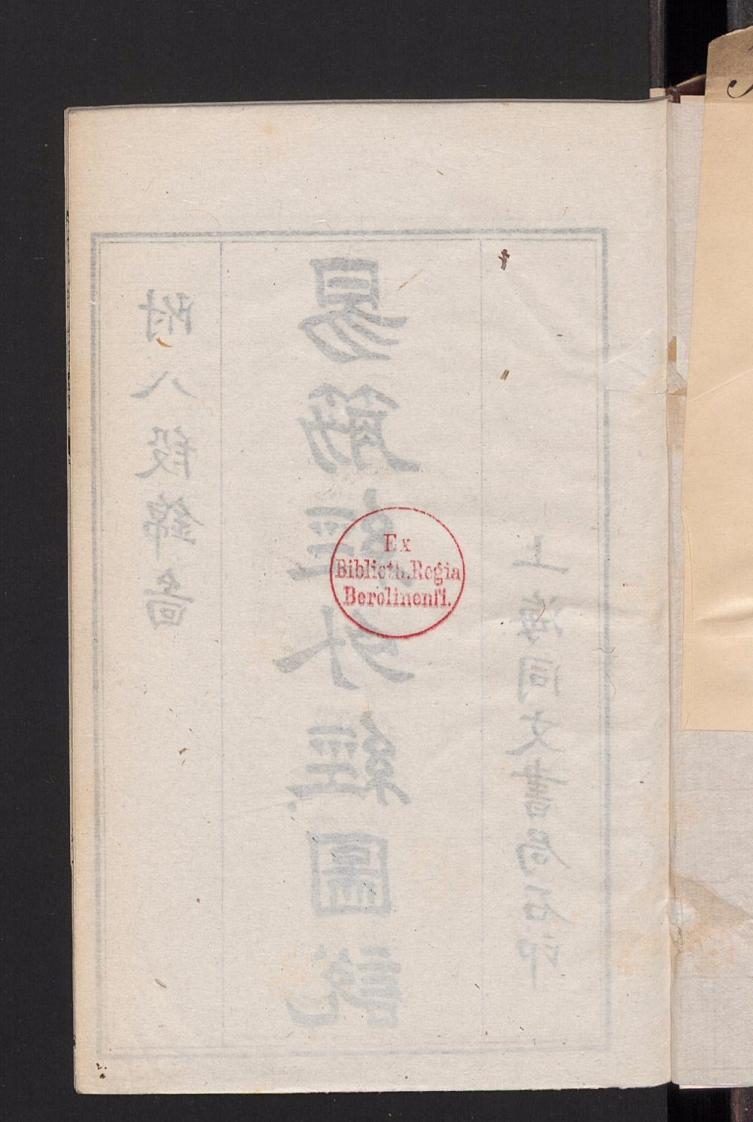 易筋經外經圖說
附八段錦啚
上海同文書局石印
Ex
Biblioth. Regia
Berolinensi.